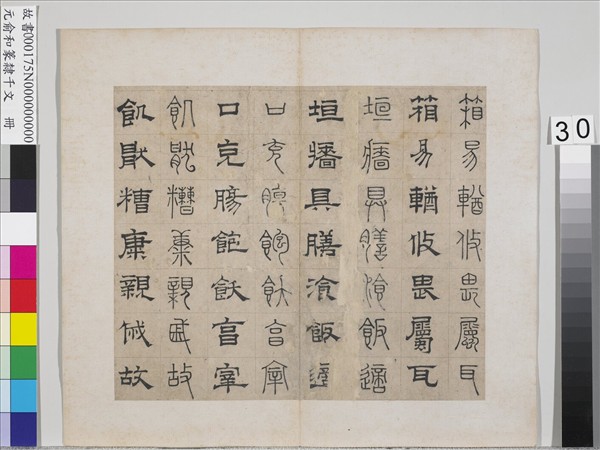 箱易輶攸畏屬耳
箱易輶攸畏屬耳
垣牆具膳湌飯適
垣牆具膳湌飯適
口充腸飽飫亯宰
口充腸飽飫亯宰
飢猒糟康親戚故
飢猒糟康親戚故
故書000175N000000000
元俞和篆隸千文 冊
30